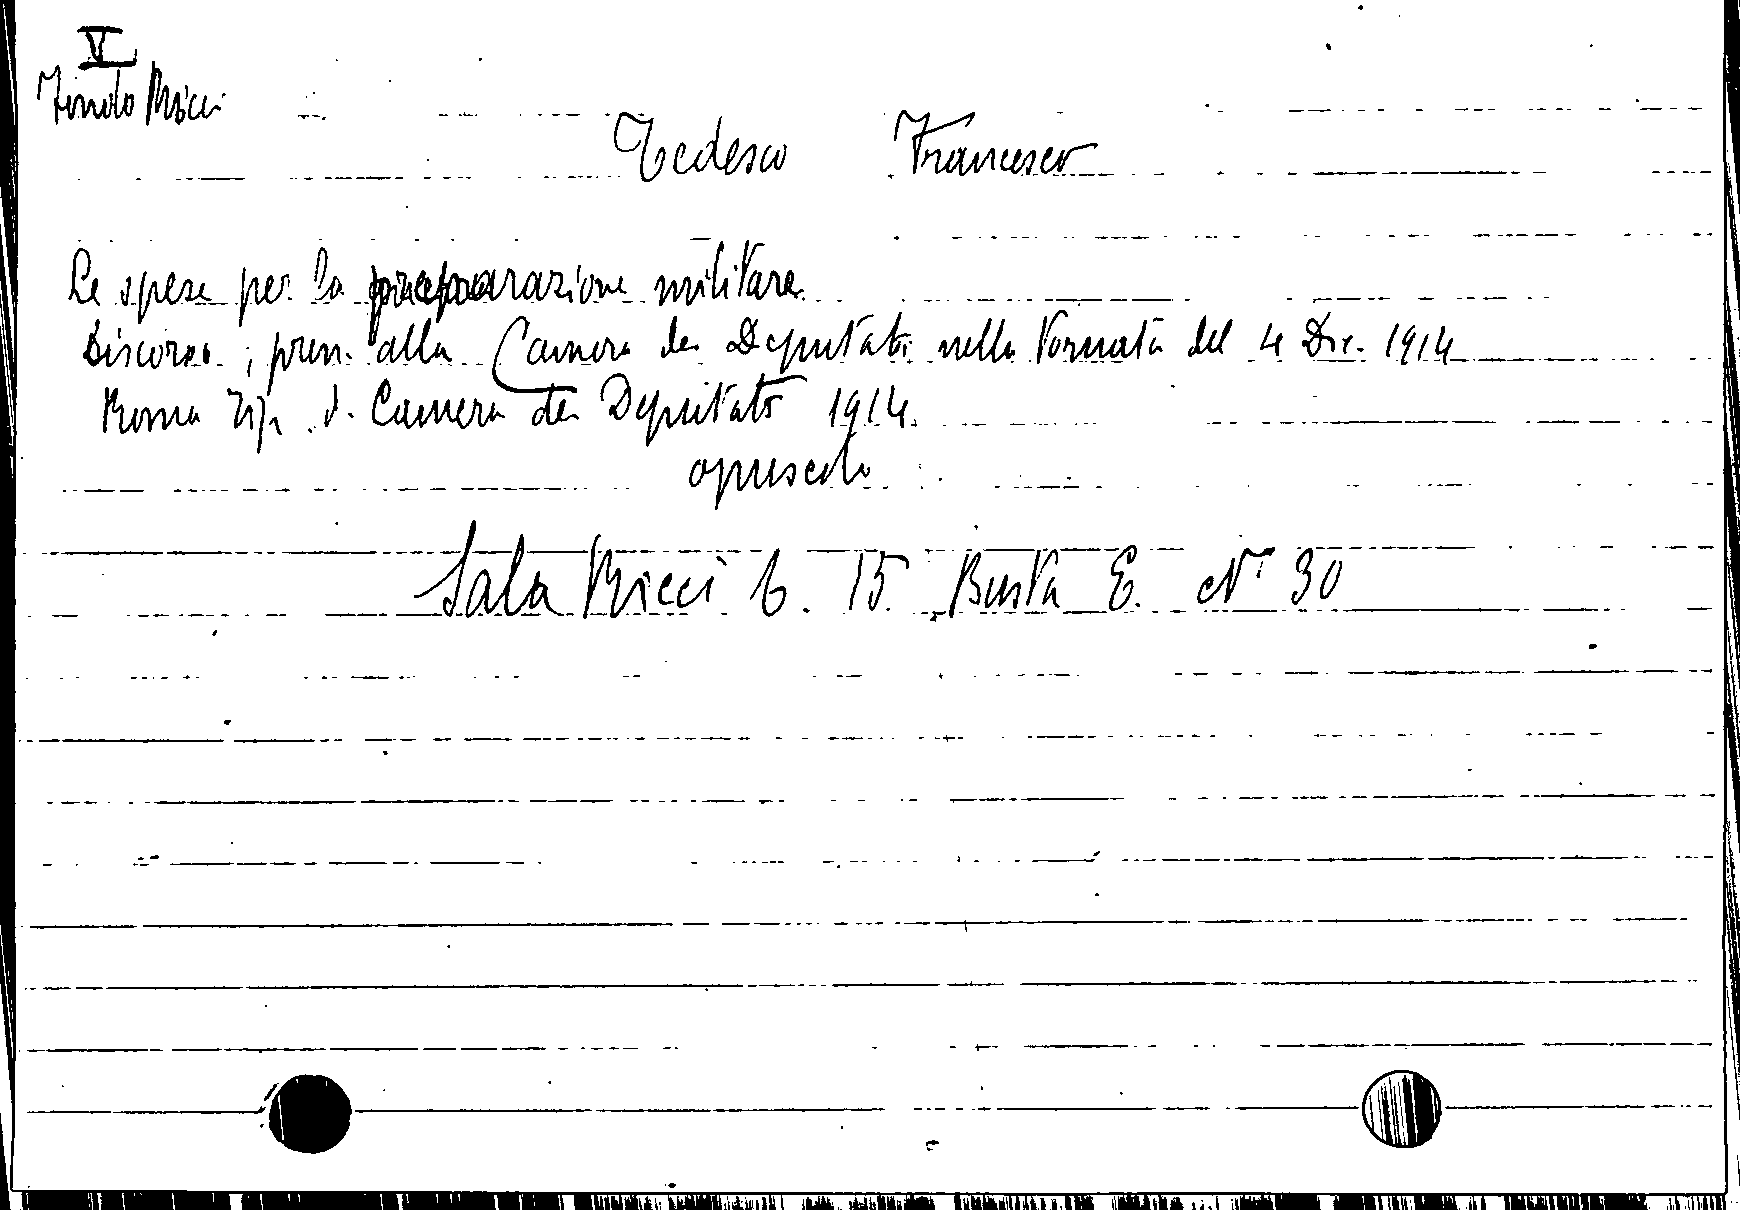 V
Fondo Ricci
Tedesco Francesco
Le spese per la preparazione militare.
Discorso, pron. alla Camera dei Deputati nella Tornata del 4 Dic. 1914
Roma Tip. d. Camera dei Deputati 1914.
opuscolo
Sala Ricci b. 15 Busta E. N° 30